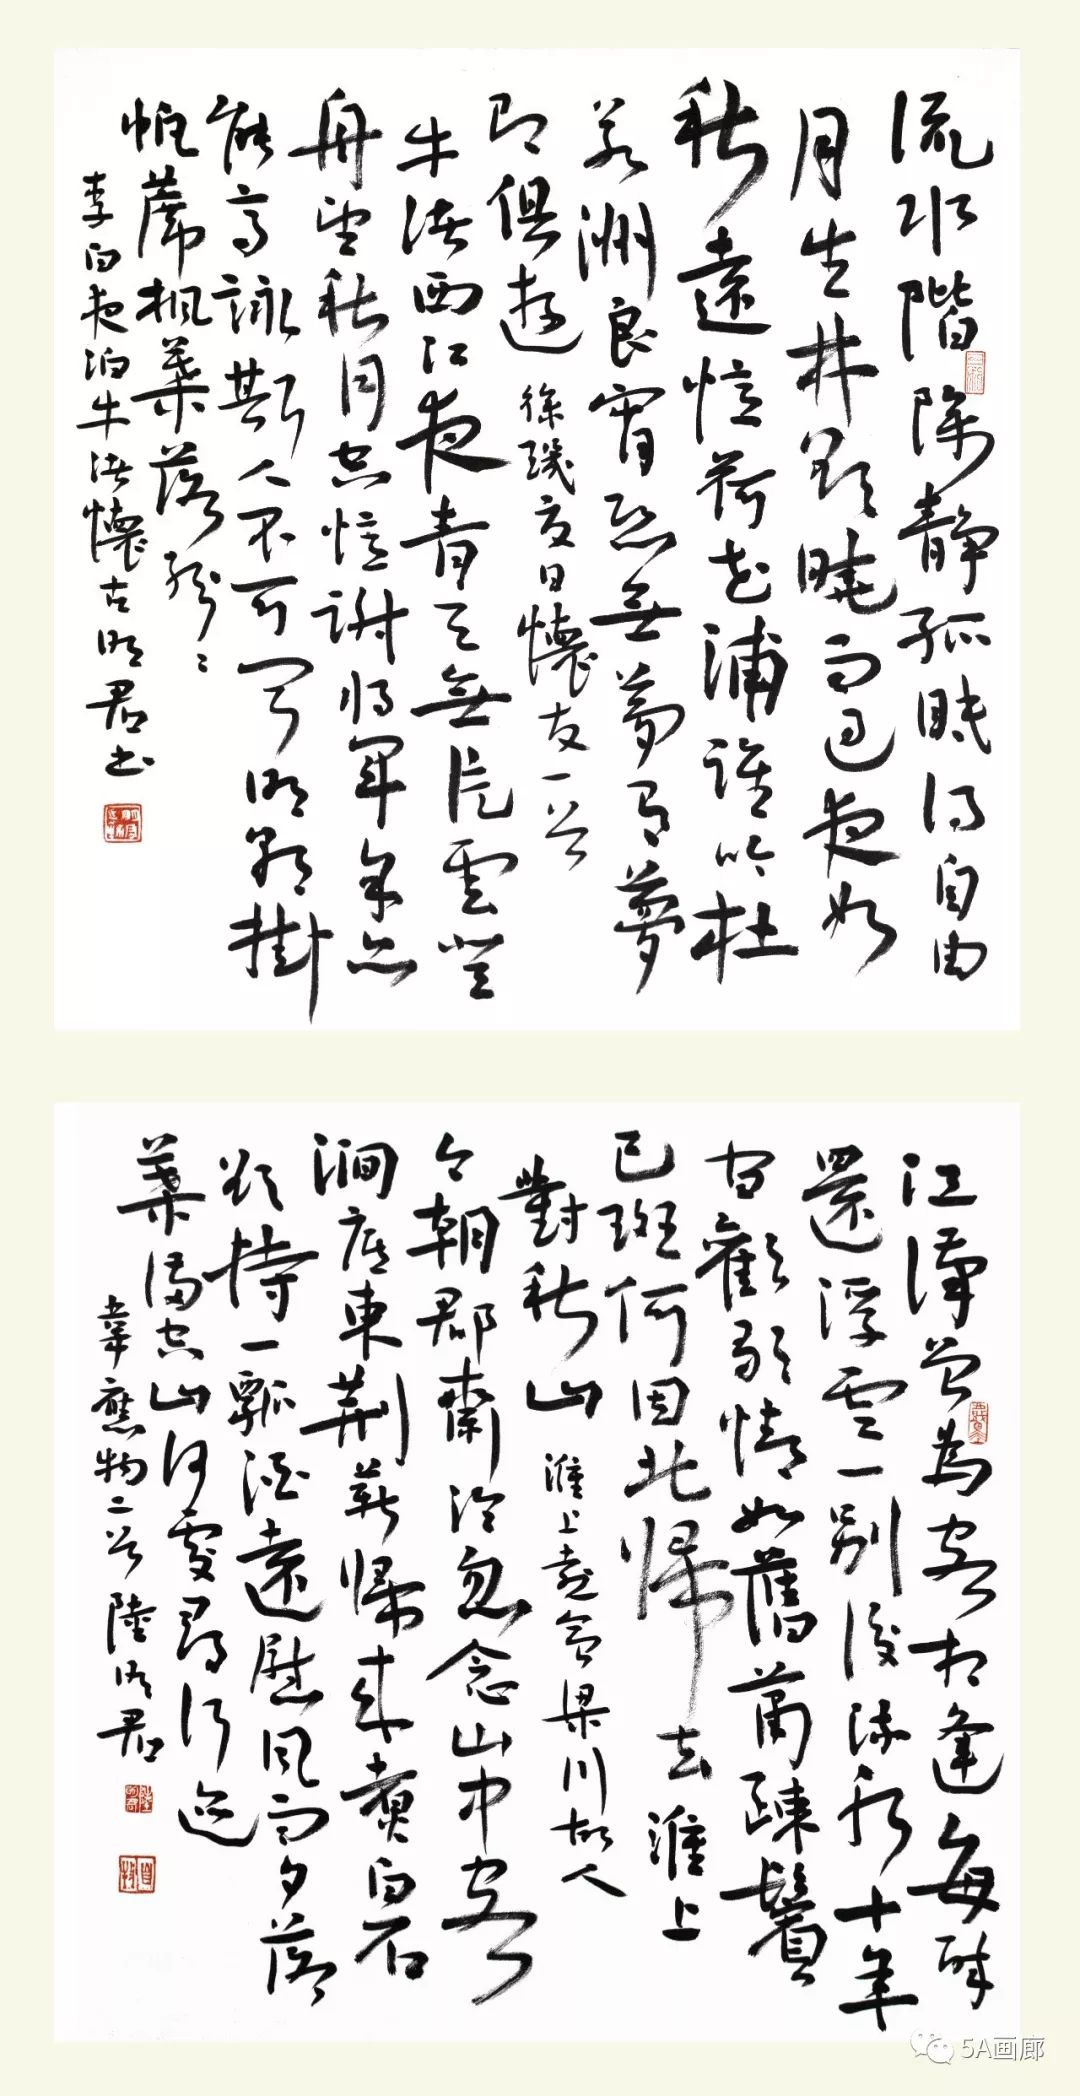 流水階除静孤眠得自由
月生林欲曉雨過夜如
秋遠憶荷花浦誰吟杜
若洲良宵恐無夢有夢
即俱遊
徐璣夏日懷友一首
牛渚西江夜青天無片雲登
舟望秋月空憶謝將軍余亦
能高詠斯人不可聞明朝掛
帆席楓葉落紛〻
李白夜泊牛渚懷古明君书
江漢曾為客相逢每醉
還浮雲一别後流水十年
間歡笑情如舊蕭疎鬢
已斑何因北歸去淮上
對秋山
淮上喜會梁川故人
今朝郡齋冷忽念山中客
澗底東荆薪歸來煮白石
欲持一瓢酒遠慰風雨夕落
葉滿空山何處尋行迹
韋應物二首陸明君
5A画廊